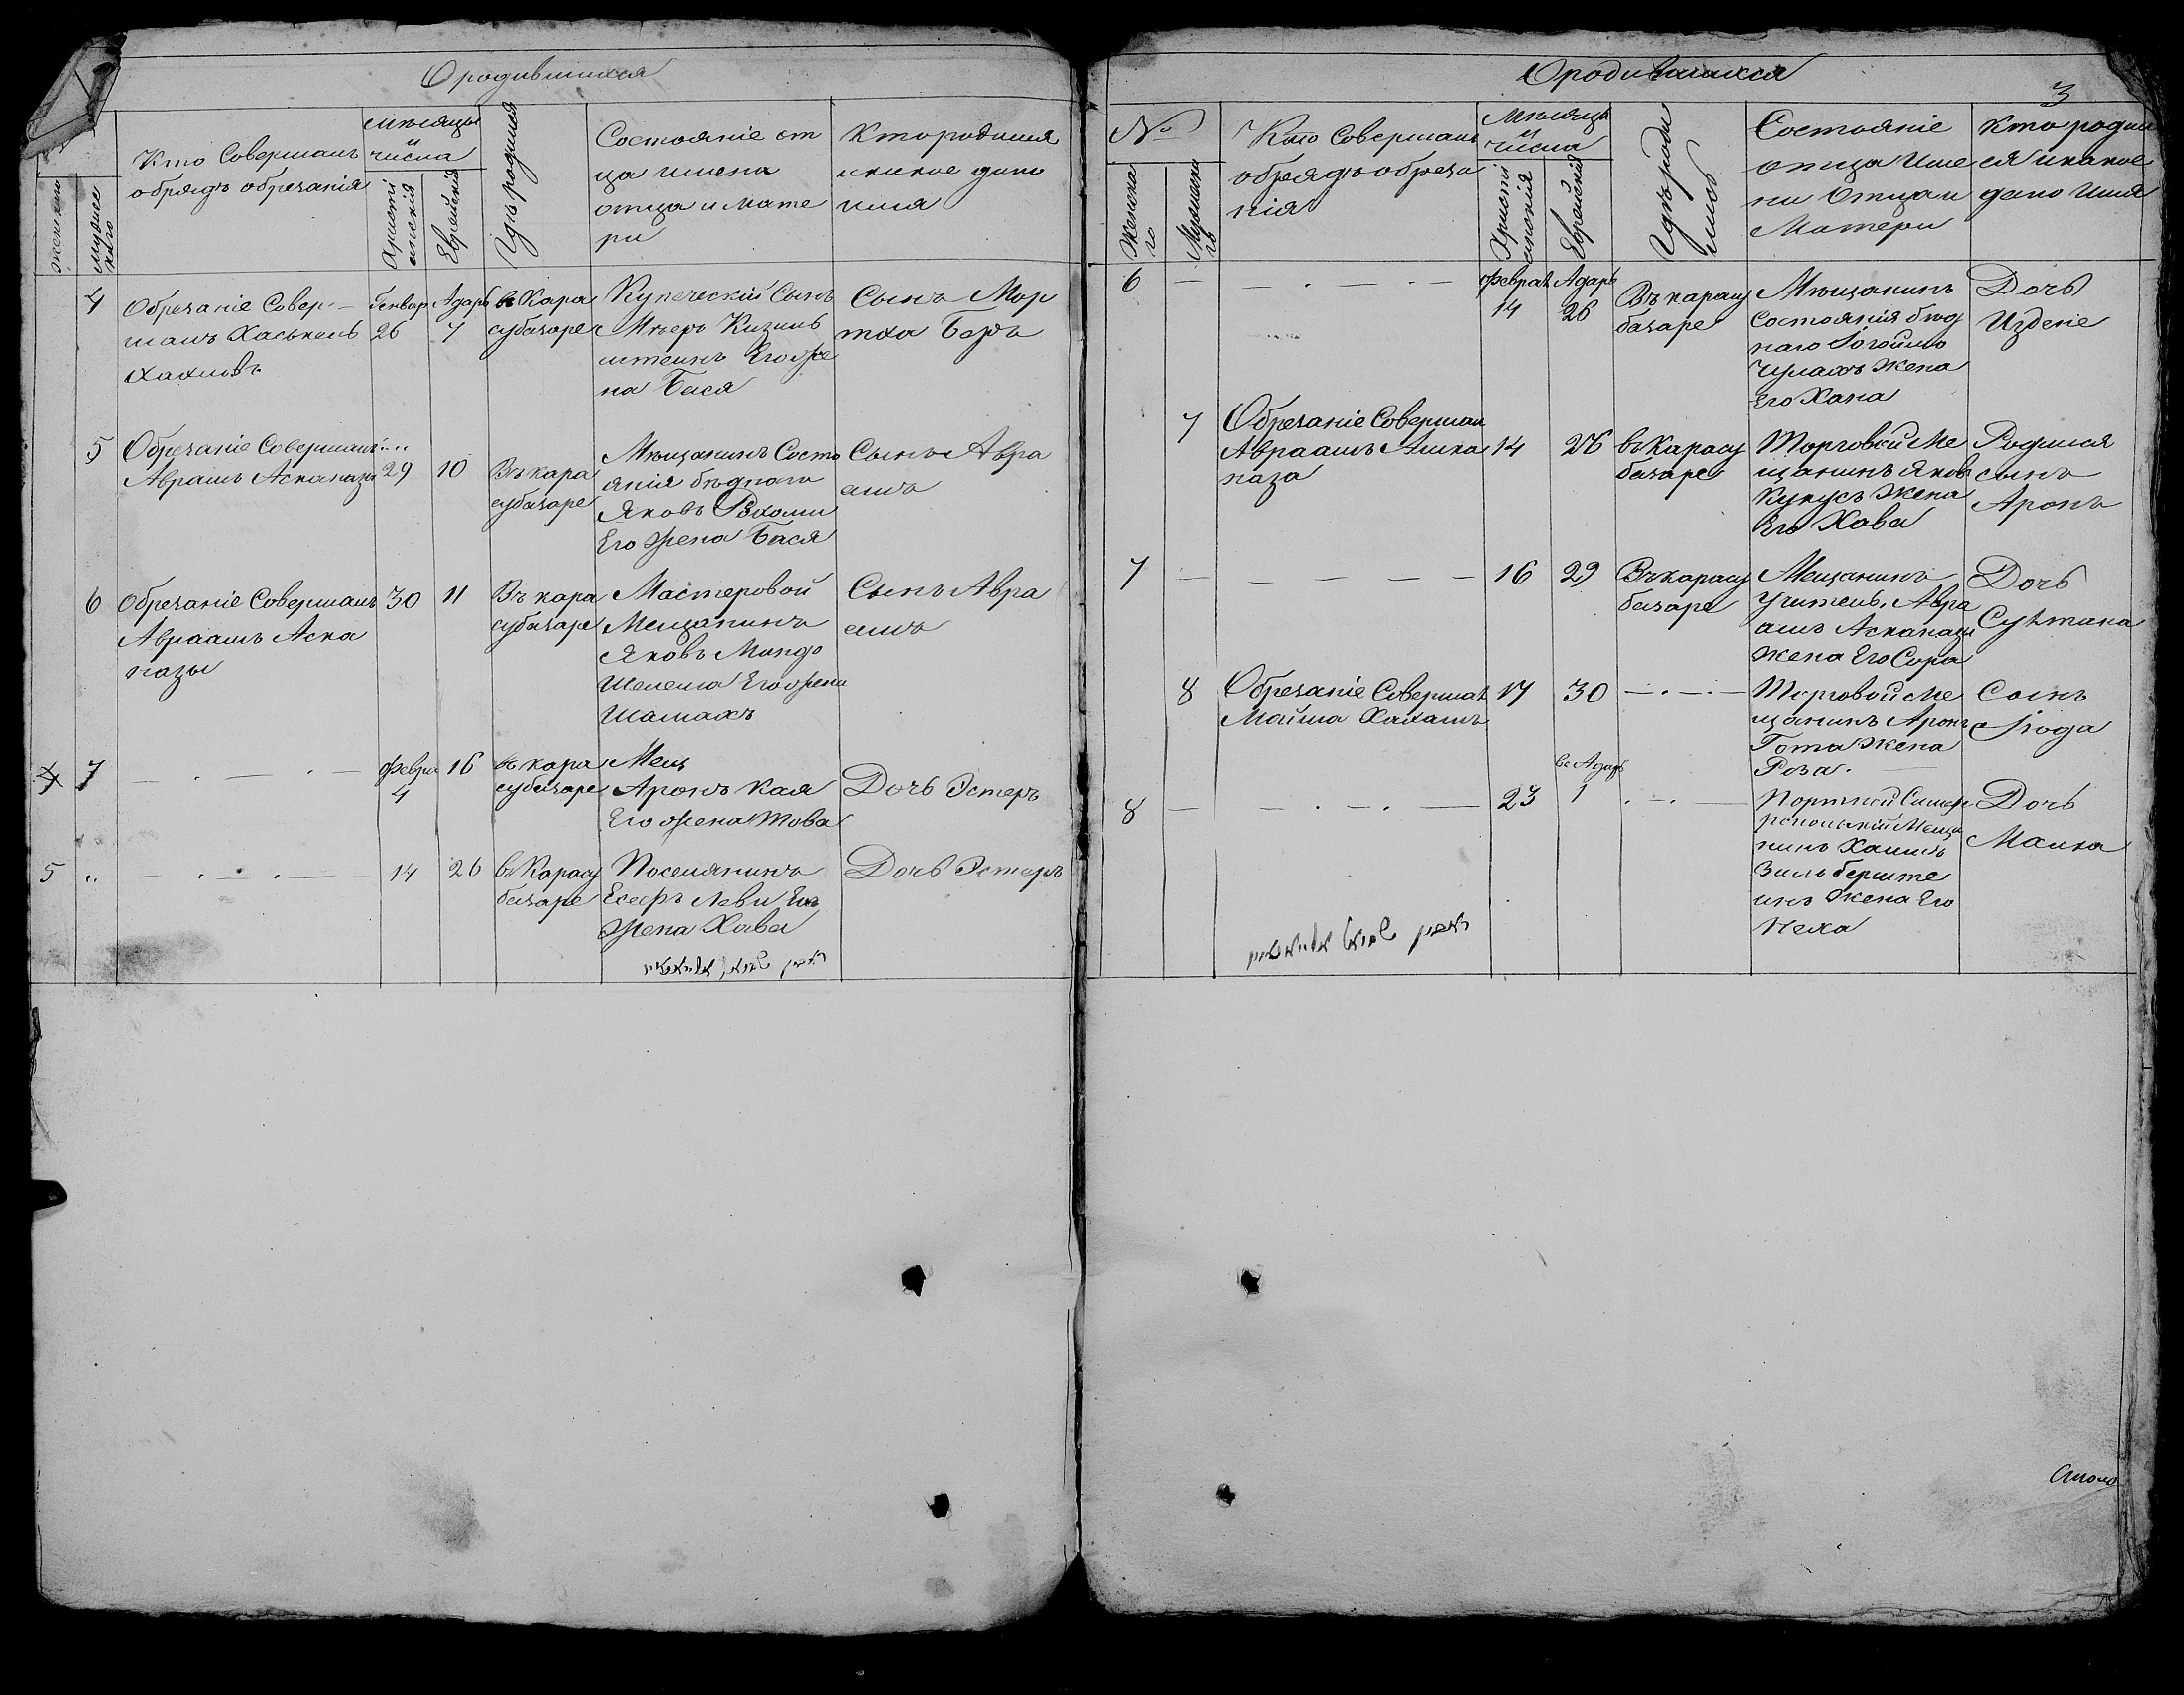 О родившихся
женскаго
мужескаго
Кто Совершалъ
обрядъ обрезанія
Мѣсяцы
и
числа
Христіанскія
Еврейскія
Гдѣ родился
Состояніе от
ца имена
отца и мате
ри
Кто родился
и какое дано
имя
4
Обрезаніе Совер
шалъ Хаскель
Хахмовъ
Генвар
26
Адаръ
7
въ Кара
субазаре
Купеческій Сынъ
Мееръ Кизиль
штеинъ Его же
на Бася
Сынъ Мор
тха Беръ
5
Обрезаніе Совершалъ
Аврамъ Асканази
29
10
Въ кара
субазаре
Мѣщанинъ Состо
янія бѣднаго
Яковъ
Его Жена Бася
Сынъ Авра
амъ
6
Обрезаніе Совершалъ
Авраамъ Аска
назы
30
11
Въ кара
субазаре
Мастеровой
Мещанинъ
Яковъ Мангo
Шелема Его жена
Шамахъ
Сынъ Авра
амъ
4 7
Февра
4
16
въ кара
субазаре
Мещ
Аронъ Кая
Его жена Това
Дочь Эстеръ
5
14
26
въ Карасу
базаре
Поселянинъ
Есефъ Леви Его
Жена Хава
Дочь Эстеръ
О родившихся
3
№
Женска
го
Мужеска
го
Кто Совершалъ
обрядъ обреза
нія
Мѣсяцы
и
числа
Христі
анскія
Еврейскія
Гдѣ роди
лись
Состояніе
отца Име
ни Отца и
Матери
Кто родил
ся и какое
дано Имя
6
Феврал
14
Адаръ
26
Въ карасу
базаре
Мѣщанинъ
Состоянія бѣд
наго
Чулахъ Жена
Его Хана
Дочь
7
Обрезаніе Совершал
Авраамъ Ашка
наза
14
26
въ Карасу
базаре
Торговой Ме
щанинъ Яковъ
Кукусъ Жена
Его Хава
Родился
сынъ
Аронъ
7
16
29
Въ карасу
базаре
Мещанинъ
Учитель Авра
амъ Асканази
Жена Его Сора
Дочь
Султана
8
Обрезаніе Совершал
Мойша Хахамъ
17
30
Торговой Ме
щанинъ Аронъ
Гота Жена
Роза.
Сынъ
Іюда
8
23
ве Адаръ
1
Портной Симфе
ропольскій Меща
нинъ Хаимъ
Зильберште
инъ Жена Его
Неха
Дочь
Малка